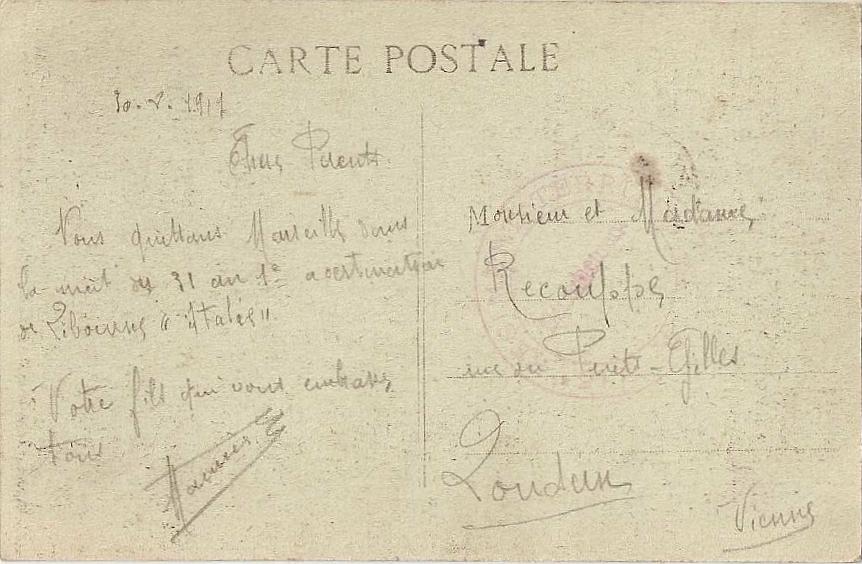 CARTE POSTALE
Chers Parents
Nous quittons Marseille dans
la nuit du 31 au 1er a destination
de Libourne "Italie"
Votre fils qui vous embrasse
Tous
Maurice
Monsieur et Madame
Recouppe
rue du Puits-Gilles
Loudun
Vienne